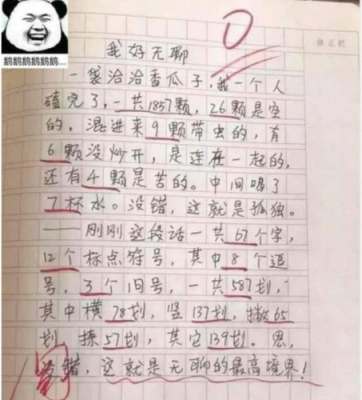 我好无聊
一袋洽洽香瓜子，我一个人
嗑完了，一共1857颗，26颗是空
的，混进来9颗带虫的，有
6颗没炒开，是连在一起的，
还有4颗是苦的。中间喝了
7杯水。没错，这就是孤独。
——刚刚这段话一共67个字，
12个标点符号，其中8个逗
号，3个句号，一共587划，
其中横78划，竖137划，撇65
划，捺57划，其它139划。恩，
没错，这就是无聊的最高境界！
鹅鹅鹅鹅鹅鹅....
0